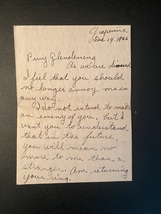 Grapevine
24, 1922
Perry Glendening
As we are divorced
I feel that you should
no longer annoy me in
any way.
I do not intend to make
an enemy of you, but I
want you to understand
that in the future,
you will mean no
more to me than a
stranger. Am returning
your ring.